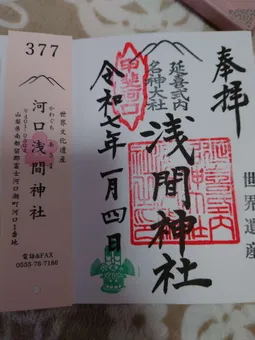 奉拝
世界遺産
延喜式内
名神大社
浅間神社
令和七年一月四日
377
世界文化遺産
かわぐち あさま
河口浅間神社
山梨県南都留郡富士河口湖町河口1番地
電話&FAX
0555-76-7186